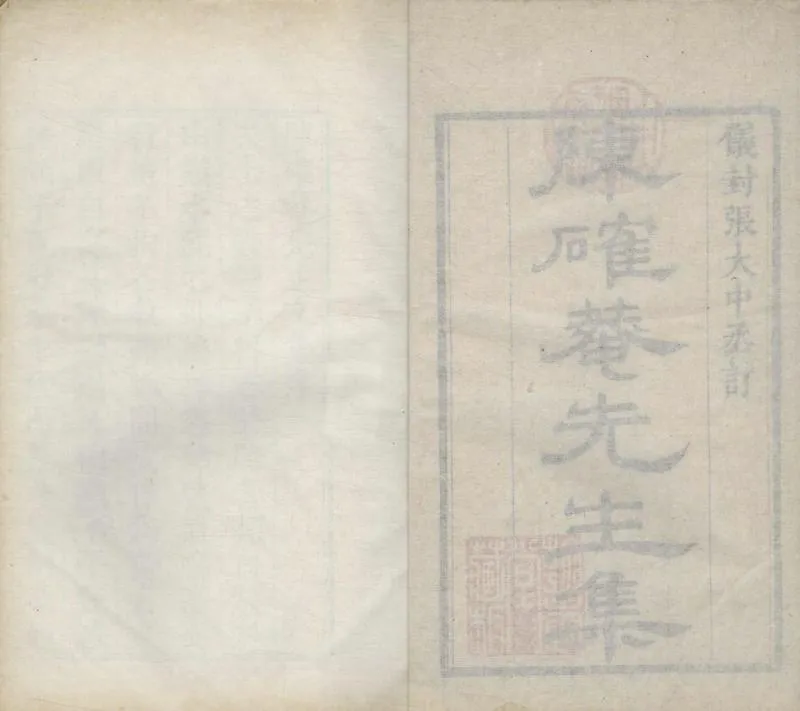 儀封張大中丞訂
陳確菴先生集